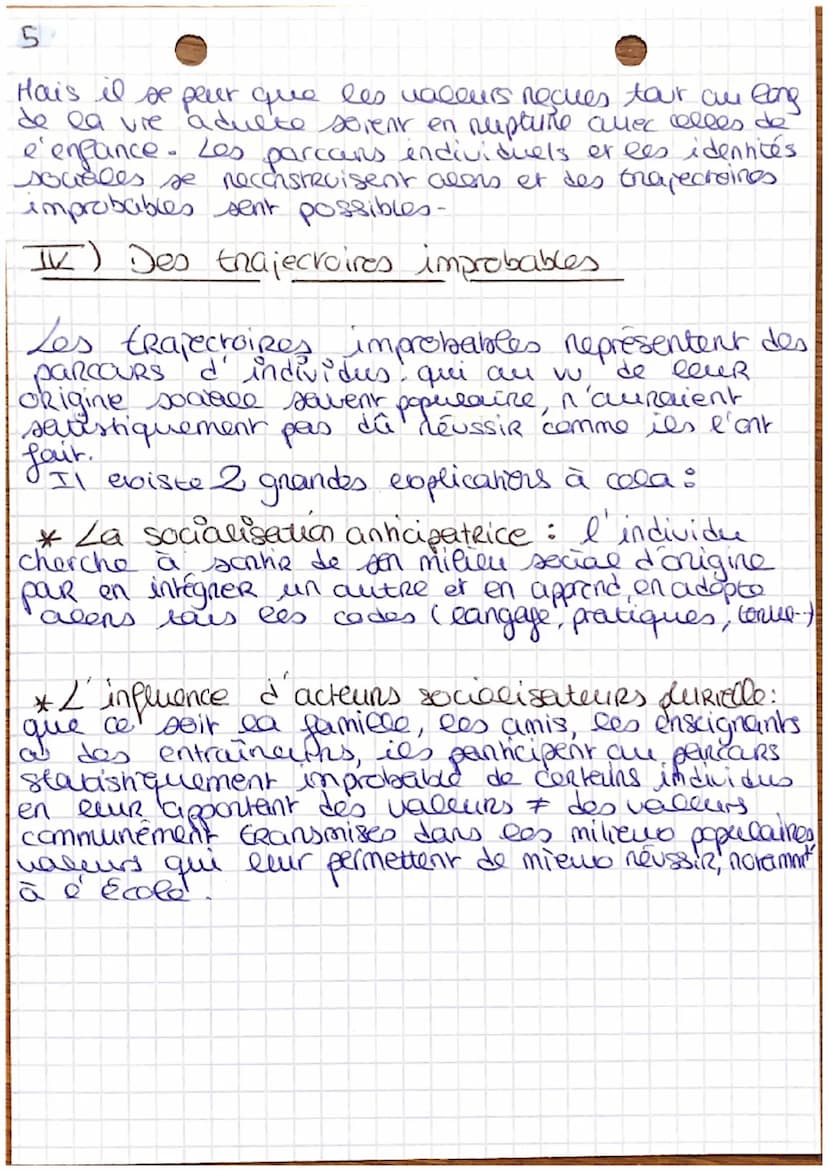 5
Mais il se peut que les valeurs reçues tout au long
de la vie adulte soient en rupture avec celles de
l'enfance. Les parcours individuels et les identités
sociales se reconstruisent alors et des trajectoires
improbables sont possibles.
IV) Des trajectoires improbables
Les trajectoires improbables représentent des
parcours d'individus qui au vu de leur
origine sociale souvent populaire, n'auraient
statistiquement pas dû réussir comme ils l'ont
fait.
Il existe 2 grandes explications à cela :
* La socialisation anticipatrice : l'individu
cherche à sortir de son milieu social d'origine
par en intégrer un autre et en apprend, en adopte
alors tous les codes (langage, pratiques, tenue..)
* L'influence d'acteurs socialisateurs plurielle :
que ce soit la famille, les amis, les enseignants
ou des entraîneurs, ils participent au parcours
statistiquement improbable de certains individus
en leur apportant des valeurs ≠ des valeurs
communément transmises dans les milieux populaires,
valeurs qui leur permettent de mieux réussir, notammt
à l'École.